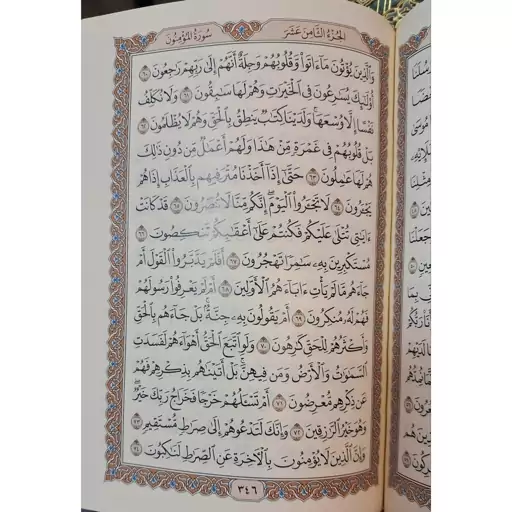 سورة المؤمنون الجزء الثامن عشر
وَالَّذِينَ يُؤْتُونَ مَا ءَاتَوا وَّقُلُوبُهُمْ وَجِلَةٌ أَنَّهُمْ إِلَىٰ رَبِّهِمْ رَٰجِعُونَ ٦٠
أُو۟لَٰٓئِكَ يُسَٰرِعُونَ فِى الْخَيْرَٰتِ وَهُمْ لَهَا سَٰبِقُونَ ٦١ وَلَا نُكَلِّفُ
نَفْسًا إِلَّا وُسْعَهَا وَلَدَيْنَا كِتَٰبٌ يَنطِقُ بِالْحَقِّ وَهُمْ لَا يُظْلَمُونَ ٦٢
بَلْ قُلُوبُهُمْ فِى غَمْرَةٍ مِّنْ هَٰذَا وَلَهُمْ أَعْمَٰلٌ مِّن دُونِ ذَٰلِكَ
هُمْ لَهَا عَٰمِلُونَ ٦٣ حَتَّىٰٓ إِذَآ أَخَذْنَا مُتْرَفِيهِم بِالْعَذَابِ إِذَا هُمْ
يَجْـَٔرُونَ ٦٤ لَا تَجْـَٔرُوا الْيَوْمَ إِنَّكُم مِّنَّا لَا تُنصَرُونَ ٦٥ قَدْ كَانَتْ
ءَايَٰتِى تُتْلَىٰ عَلَيْكُمْ فَكُنتُمْ عَلَىٰٓ أَعْقَٰبِكُمْ تَنكِصُونَ ٦٦
مُسْتَكْبِرِينَ بِهِۦ سَٰمِرًا تَهْجُرُونَ ٦٧ أَفَلَمْ يَدَّبَّرُوا الْقَوْلَ أَمْ
جَآءَهُم مَّا لَمْ يَأْتِ ءَابَآءَهُمُ الْأَوَّلِينَ ٦٨ أَمْ لَمْ يَعْرِفُوا رَسُولَهُمْ
فَهُمْ لَهُۥ مُنكِرُونَ ٦٩ أَمْ يَقُولُونَ بِهِۦ جِنَّةٌ بَلْ جَآءَهُم بِالْحَقِّ
وَأَكْثَرُهُمْ لِلْحَقِّ كَٰرِهُونَ ٧٠ وَلَوِ اتَّبَعَ الْحَقُّ أَهْوَآءَهُمْ لَفَسَدَتِ
السَّمَٰوَٰتُ وَالْأَرْضُ وَمَن فِيهِنَّ بَلْ أَتَيْنَٰهُم بِذِكْرِهِمْ فَهُمْ
عَن ذِكْرِهِم مُّعْرِضُونَ ٧١ أَمْ تَسْـَٔلُهُمْ خَرْجًا فَخَرَاجُ رَبِّكَ خَيْرٌ
وَهُوَ خَيْرُ الرَّٰزِقِينَ ٧٢ وَإِنَّكَ لَتَدْعُوهُمْ إِلَىٰ صِرَٰطٍ مُّسْتَقِيمٍ ٧٣
وَإِنَّ الَّذِينَ لَا يُؤْمِنُونَ بِالْآخِرَةِ عَنِ الصِّرَٰطِ لَنَٰكِبُونَ ٧٤
٣٤٦